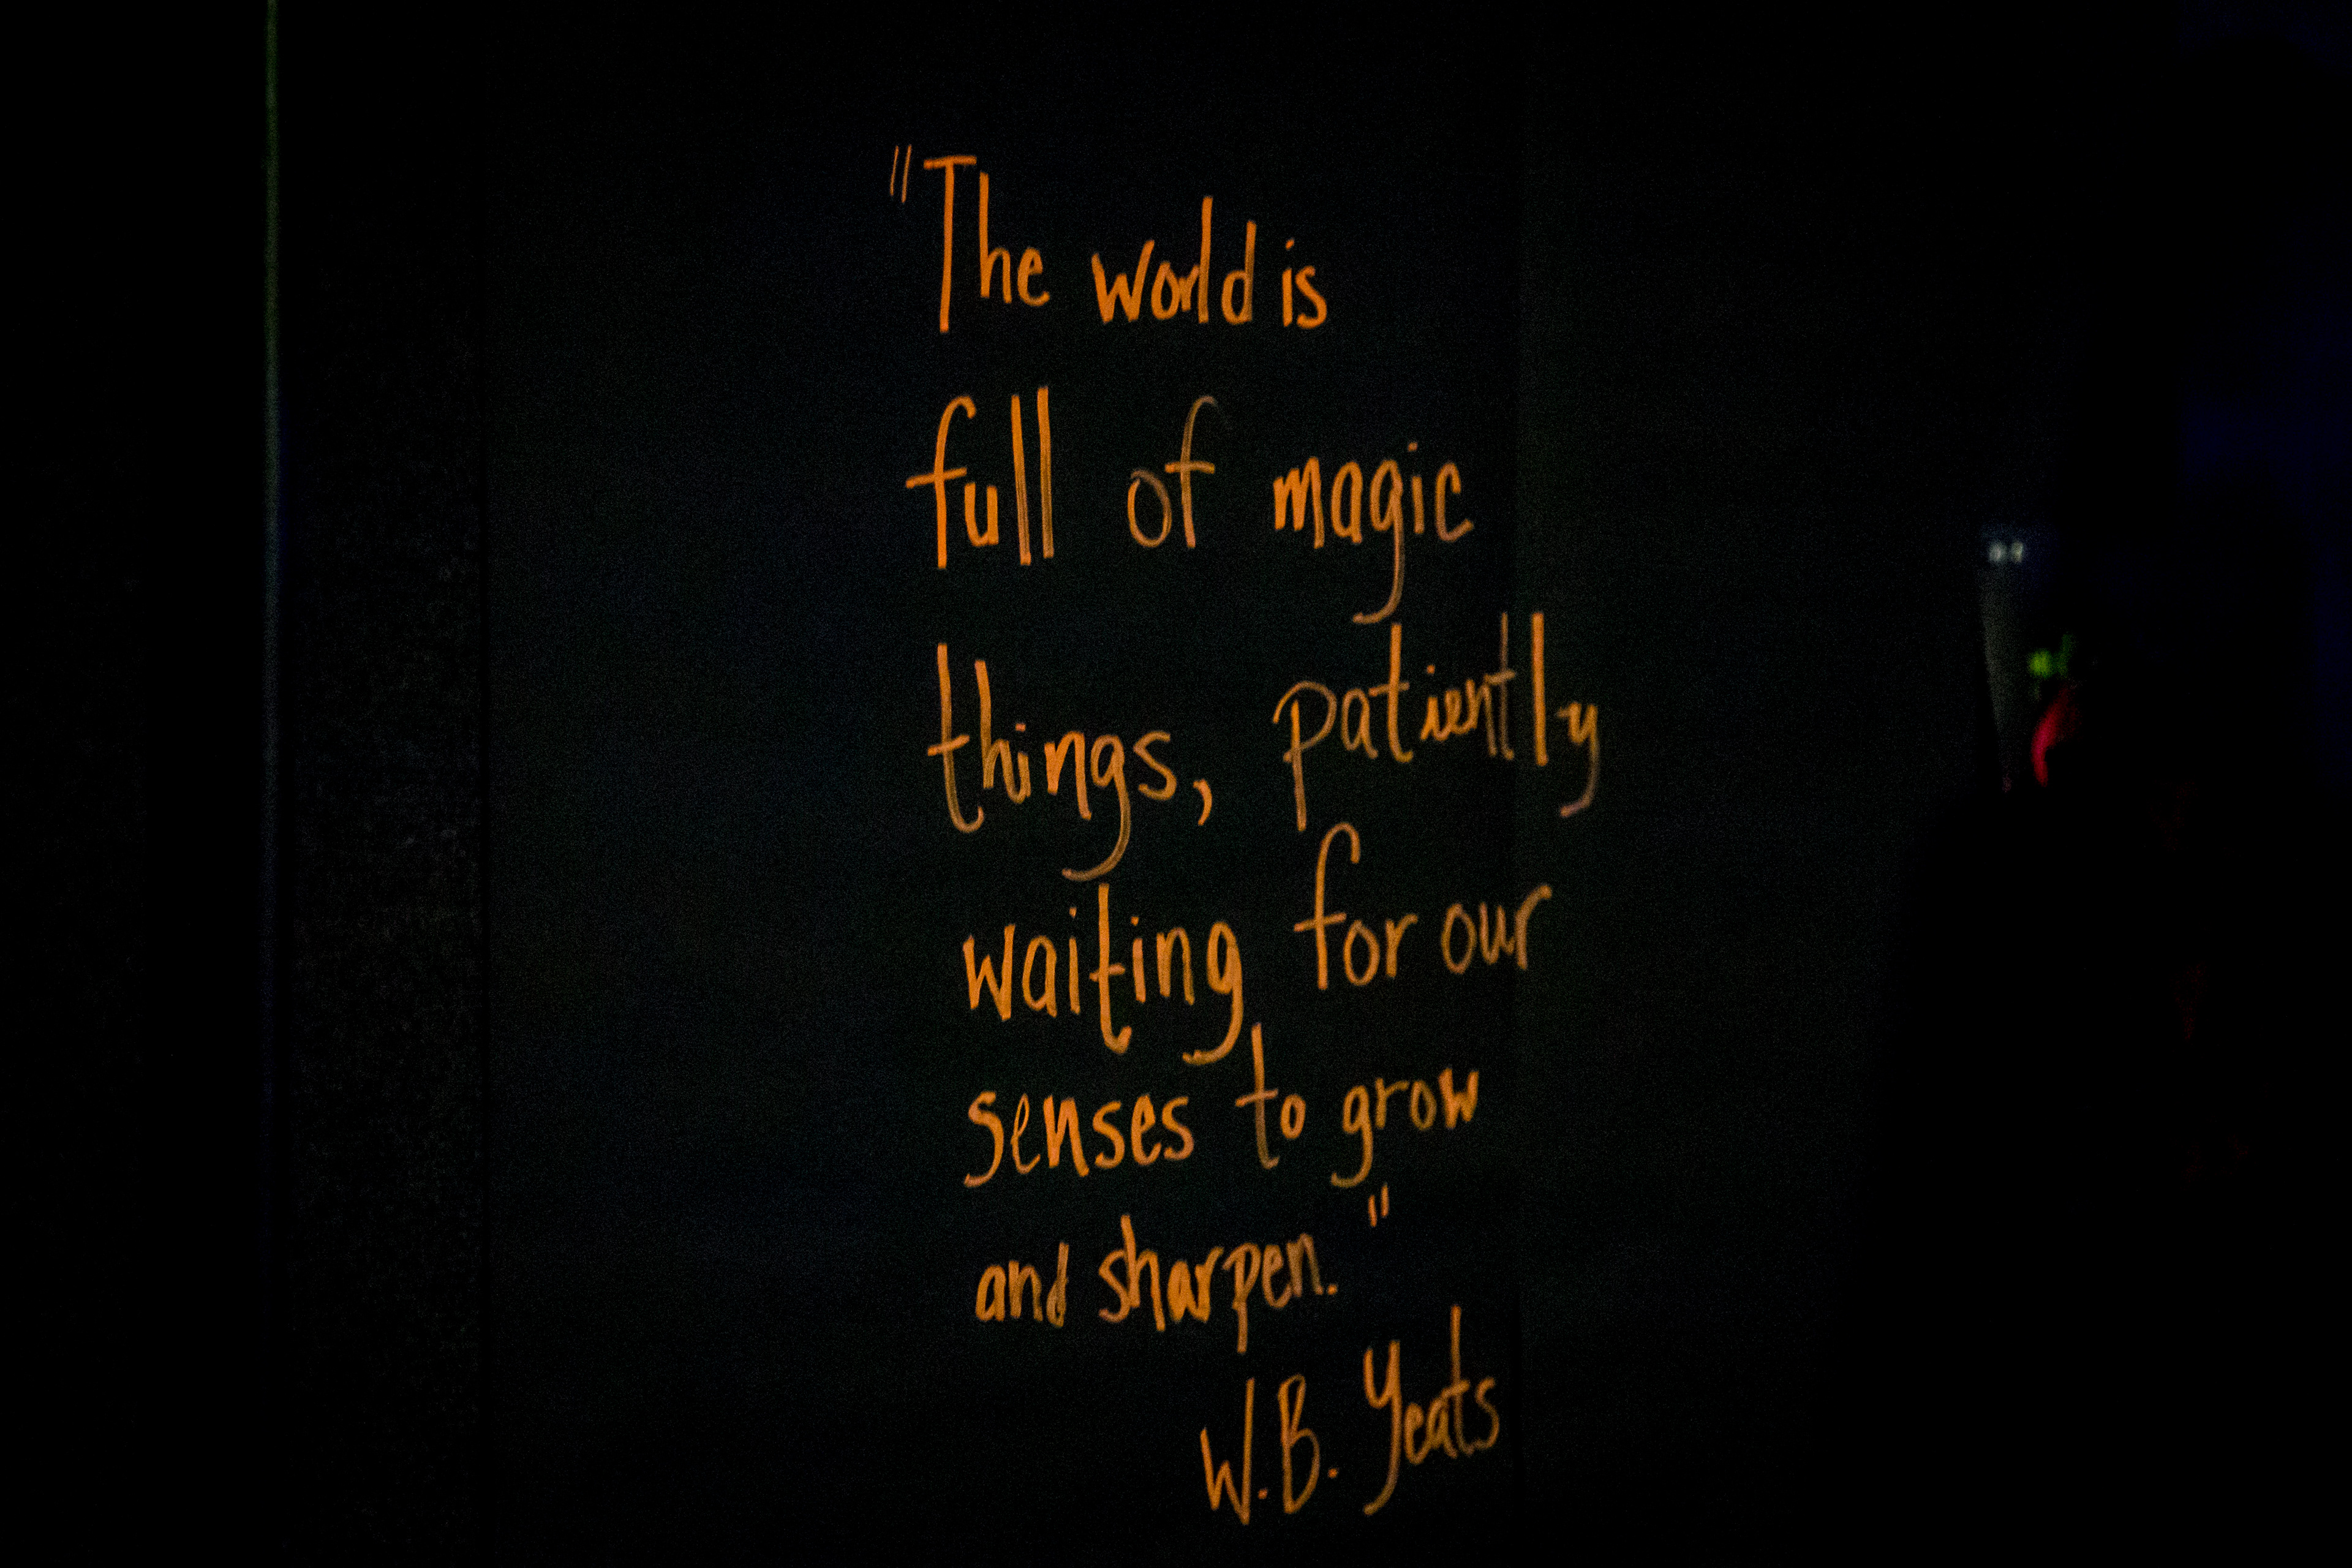 "The world is
full of magic
things, patiently
waiting for our
senses to grow
and sharpen."
W.B. Yeats